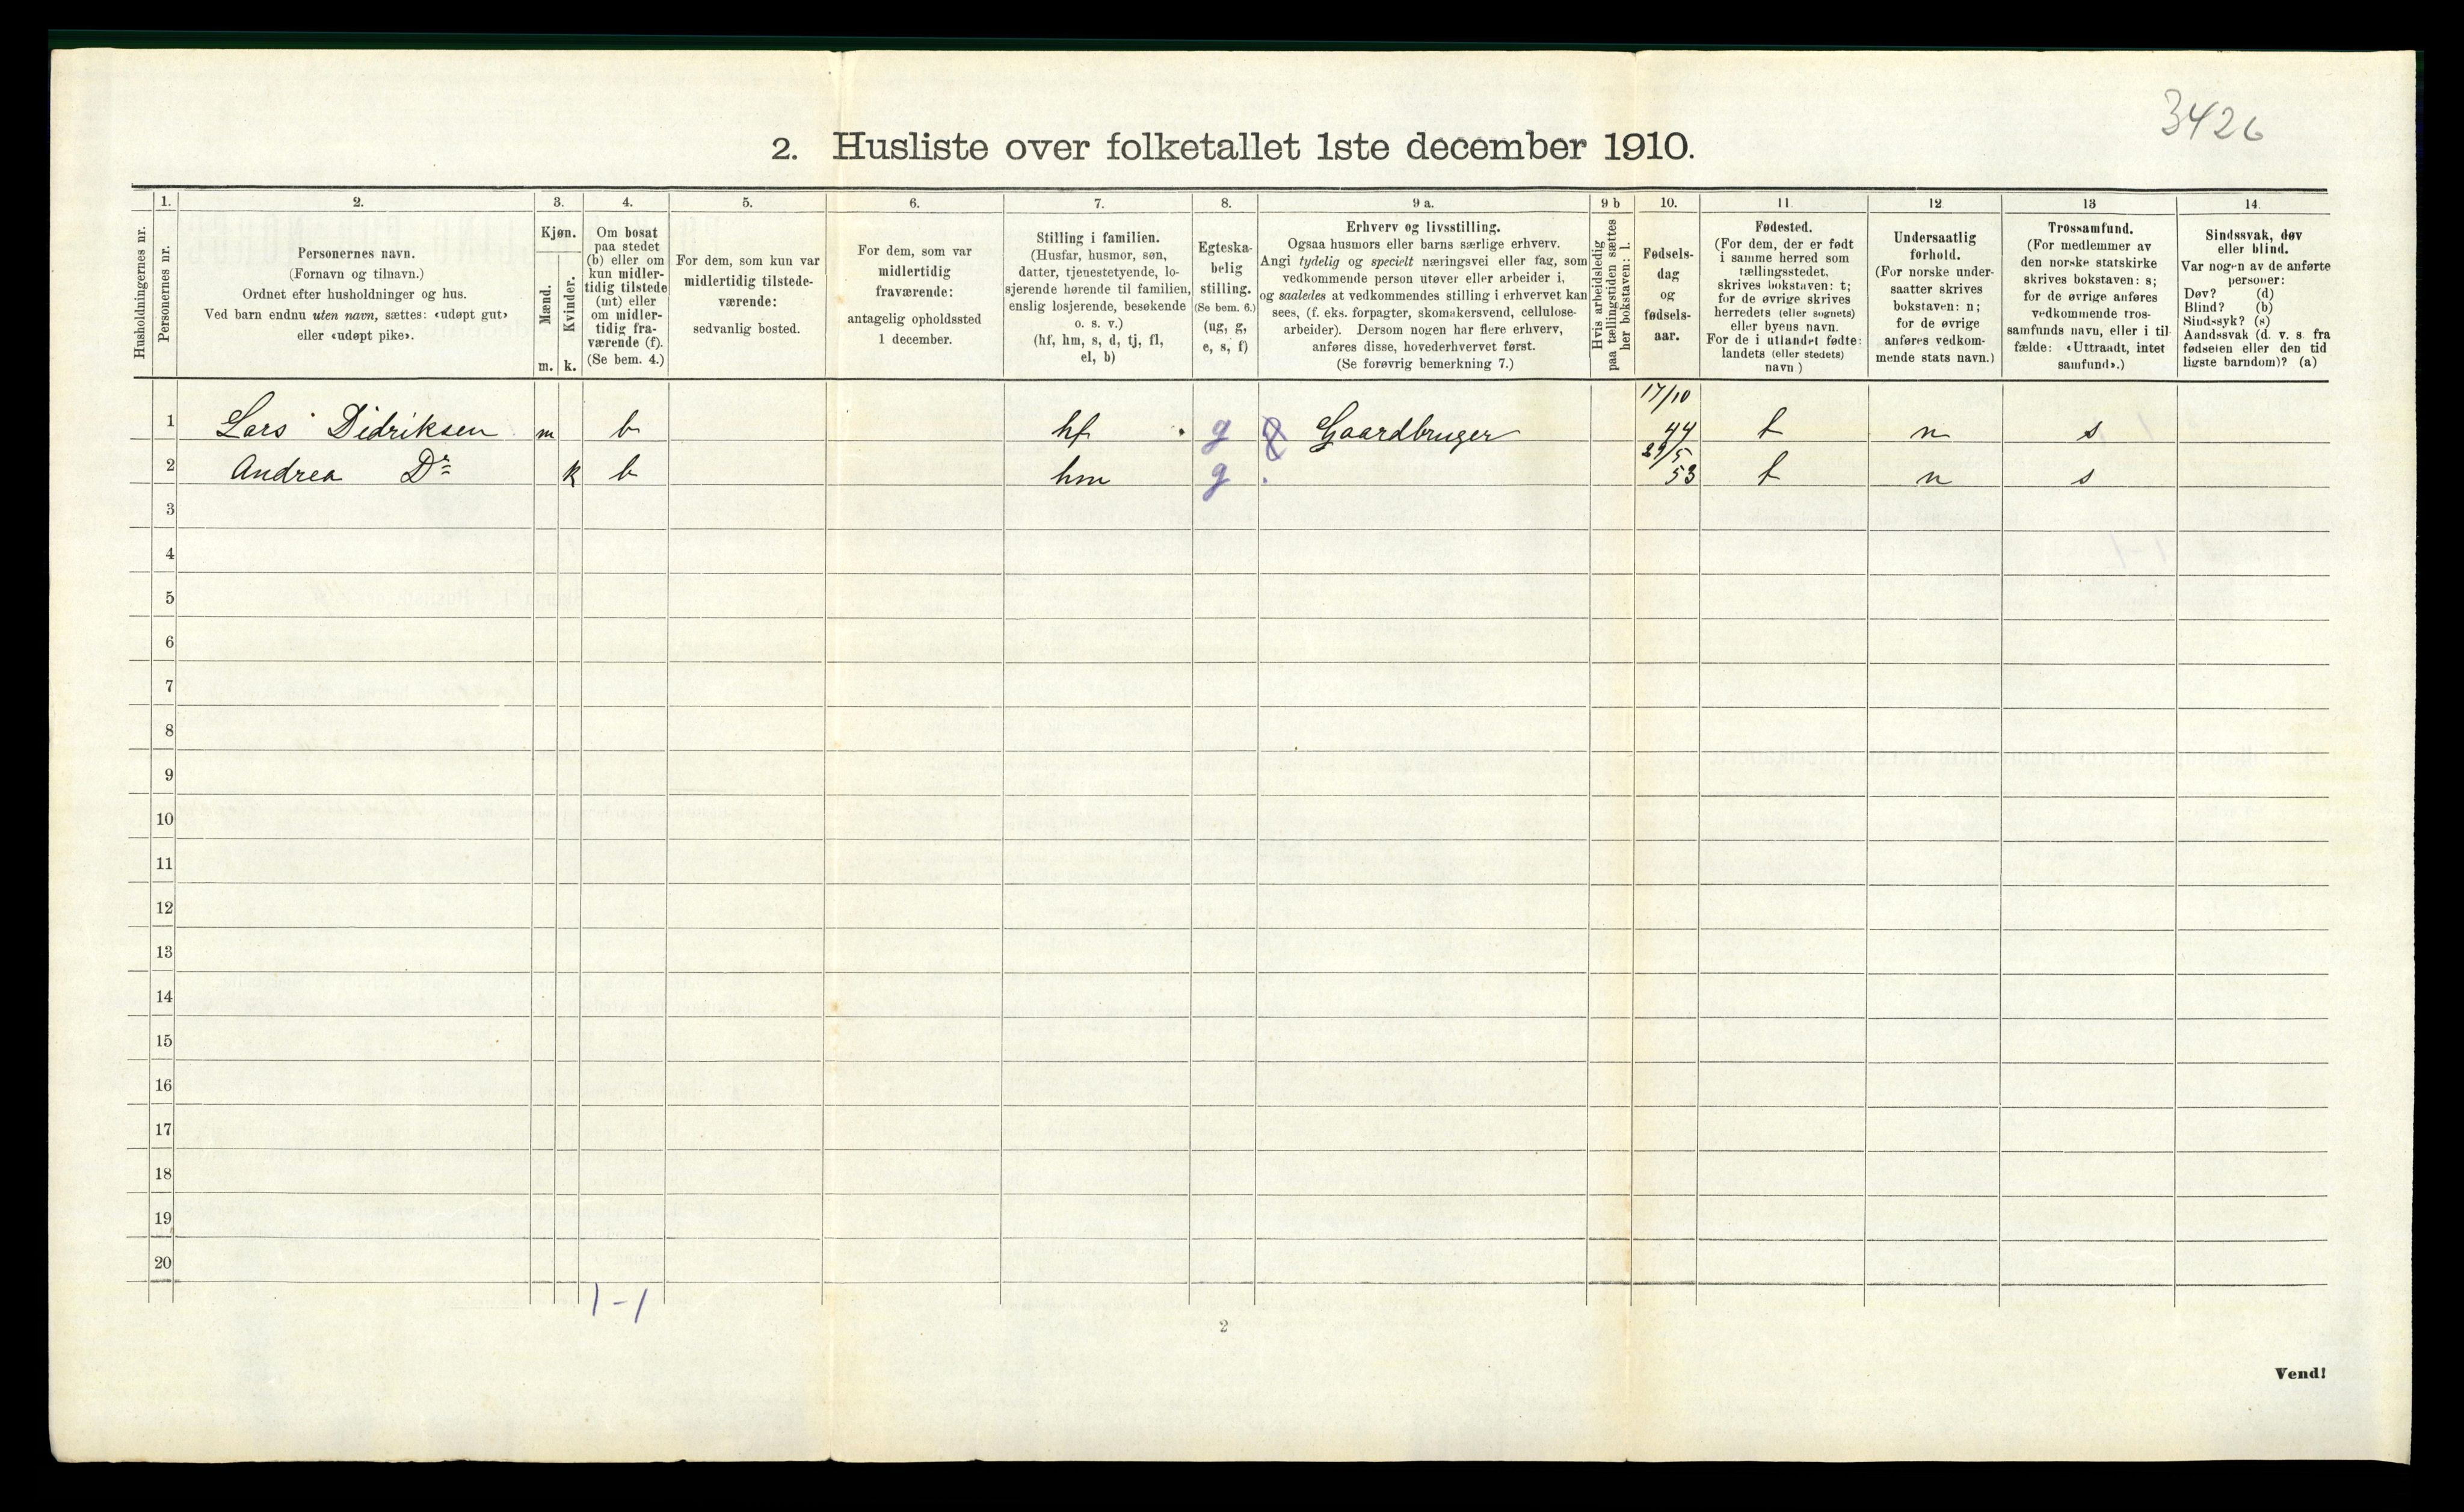 3426
2. Husliste over folketallet 1ste december 1910.
Husholdningernes nr.
1.
Personernes nr.
2.
Personernes navn.
(Fornavn og tilnavn.)
Ordnet efter husholdninger og hus.
Ved barn endnu uten navn, sættes: «udøpt gut»
eller «udøpt pike».
3.
Kjøn.
Mænd.
Kvinder.
m.
k.
4.
Om bosat
paa stedet
(b) eller om
kun midler-
tidig tilstede
(mt) eller
om midler-
tidig fra-
værende (f).
(Se bem. 4.)
5.
For dem, som kun var
midlertidig tilstede-
værende:
sedvanlig bosted.
6.
For dem, som var
midlertidig
fraværende:
antagelig opholdssted
1 december.
7.
Stilling i familien.
(Husfar, husmor, søn,
datter, tjenestetyende, lo-
sjerende hørende til familien,
enslig losjerende, besøkende
o. s. v.)
(hf, hm, s, d, tj, fl,
el, b)
8.
Egteska-
belig
stilling.
(Se bem. 6.)
(ug, g,
e, s, f)
9 a.
Erhverv og livsstilling.
Ogsaa husmors eller barns særlige erhverv.
Angi tydelig og specielt næringsvei eller fag, som
vedkommende person utøver eller arbeider i,
og saaledes at vedkommendes stilling i erhvervet kan
sees, (f. eks. forpagter, skomakersvend, cellulose-
arbeider). Dersom nogen har flere erhverv,
anføres disse, hovederhvervet først.
(Se forøvrig bemerkning 7.)
9 b
Hvis arbeidsledig
paa tællingstiden sættes
her bokstaven: l.
10.
Fødsels-
dag
og
fødsels-
aar.
11.
Fødested.
(For dem, der er født
i samme herred som
tællingsstedet,
skrives bokstaven: t;
for de øvrige skrives
herredets (eller sognets)
eller byens navn.
For de i utlandet fødte:
landets (eller stedets)
navn.)
12
Undersaatlig
forhold.
(For norske under-
saatter skrives
bokstaven: n;
for de øvrige
anføres vedkom-
mende stats navn.)
13
Trossamfund.
(For medlemmer av
den norske statskirke
skrives bokstaven: s;
for de øvrige anføres
vedkommende tros-
samfunds navn, eller i til-
fælde: «Uttraadt, intet
samfund».)
14.
Sindssvak, døv
eller blind.
Var nogen av de anførte
personer:
Døv? (d)
Blind? (b)
Sindssyk? (s)
Aandssvak (d. v. s. fra
fødselen eller den tid-
ligste barndom)? (a)
1 Lars Didriksen m b hf g Gaardbruger 17/10 44 t n s
2 Andrea Dr k b hm g 29/5 53 t n s
3
4
5
6
7
8
9
10
11
12
13
14
15
16
17
18
19
20
1-1
2
Vend!